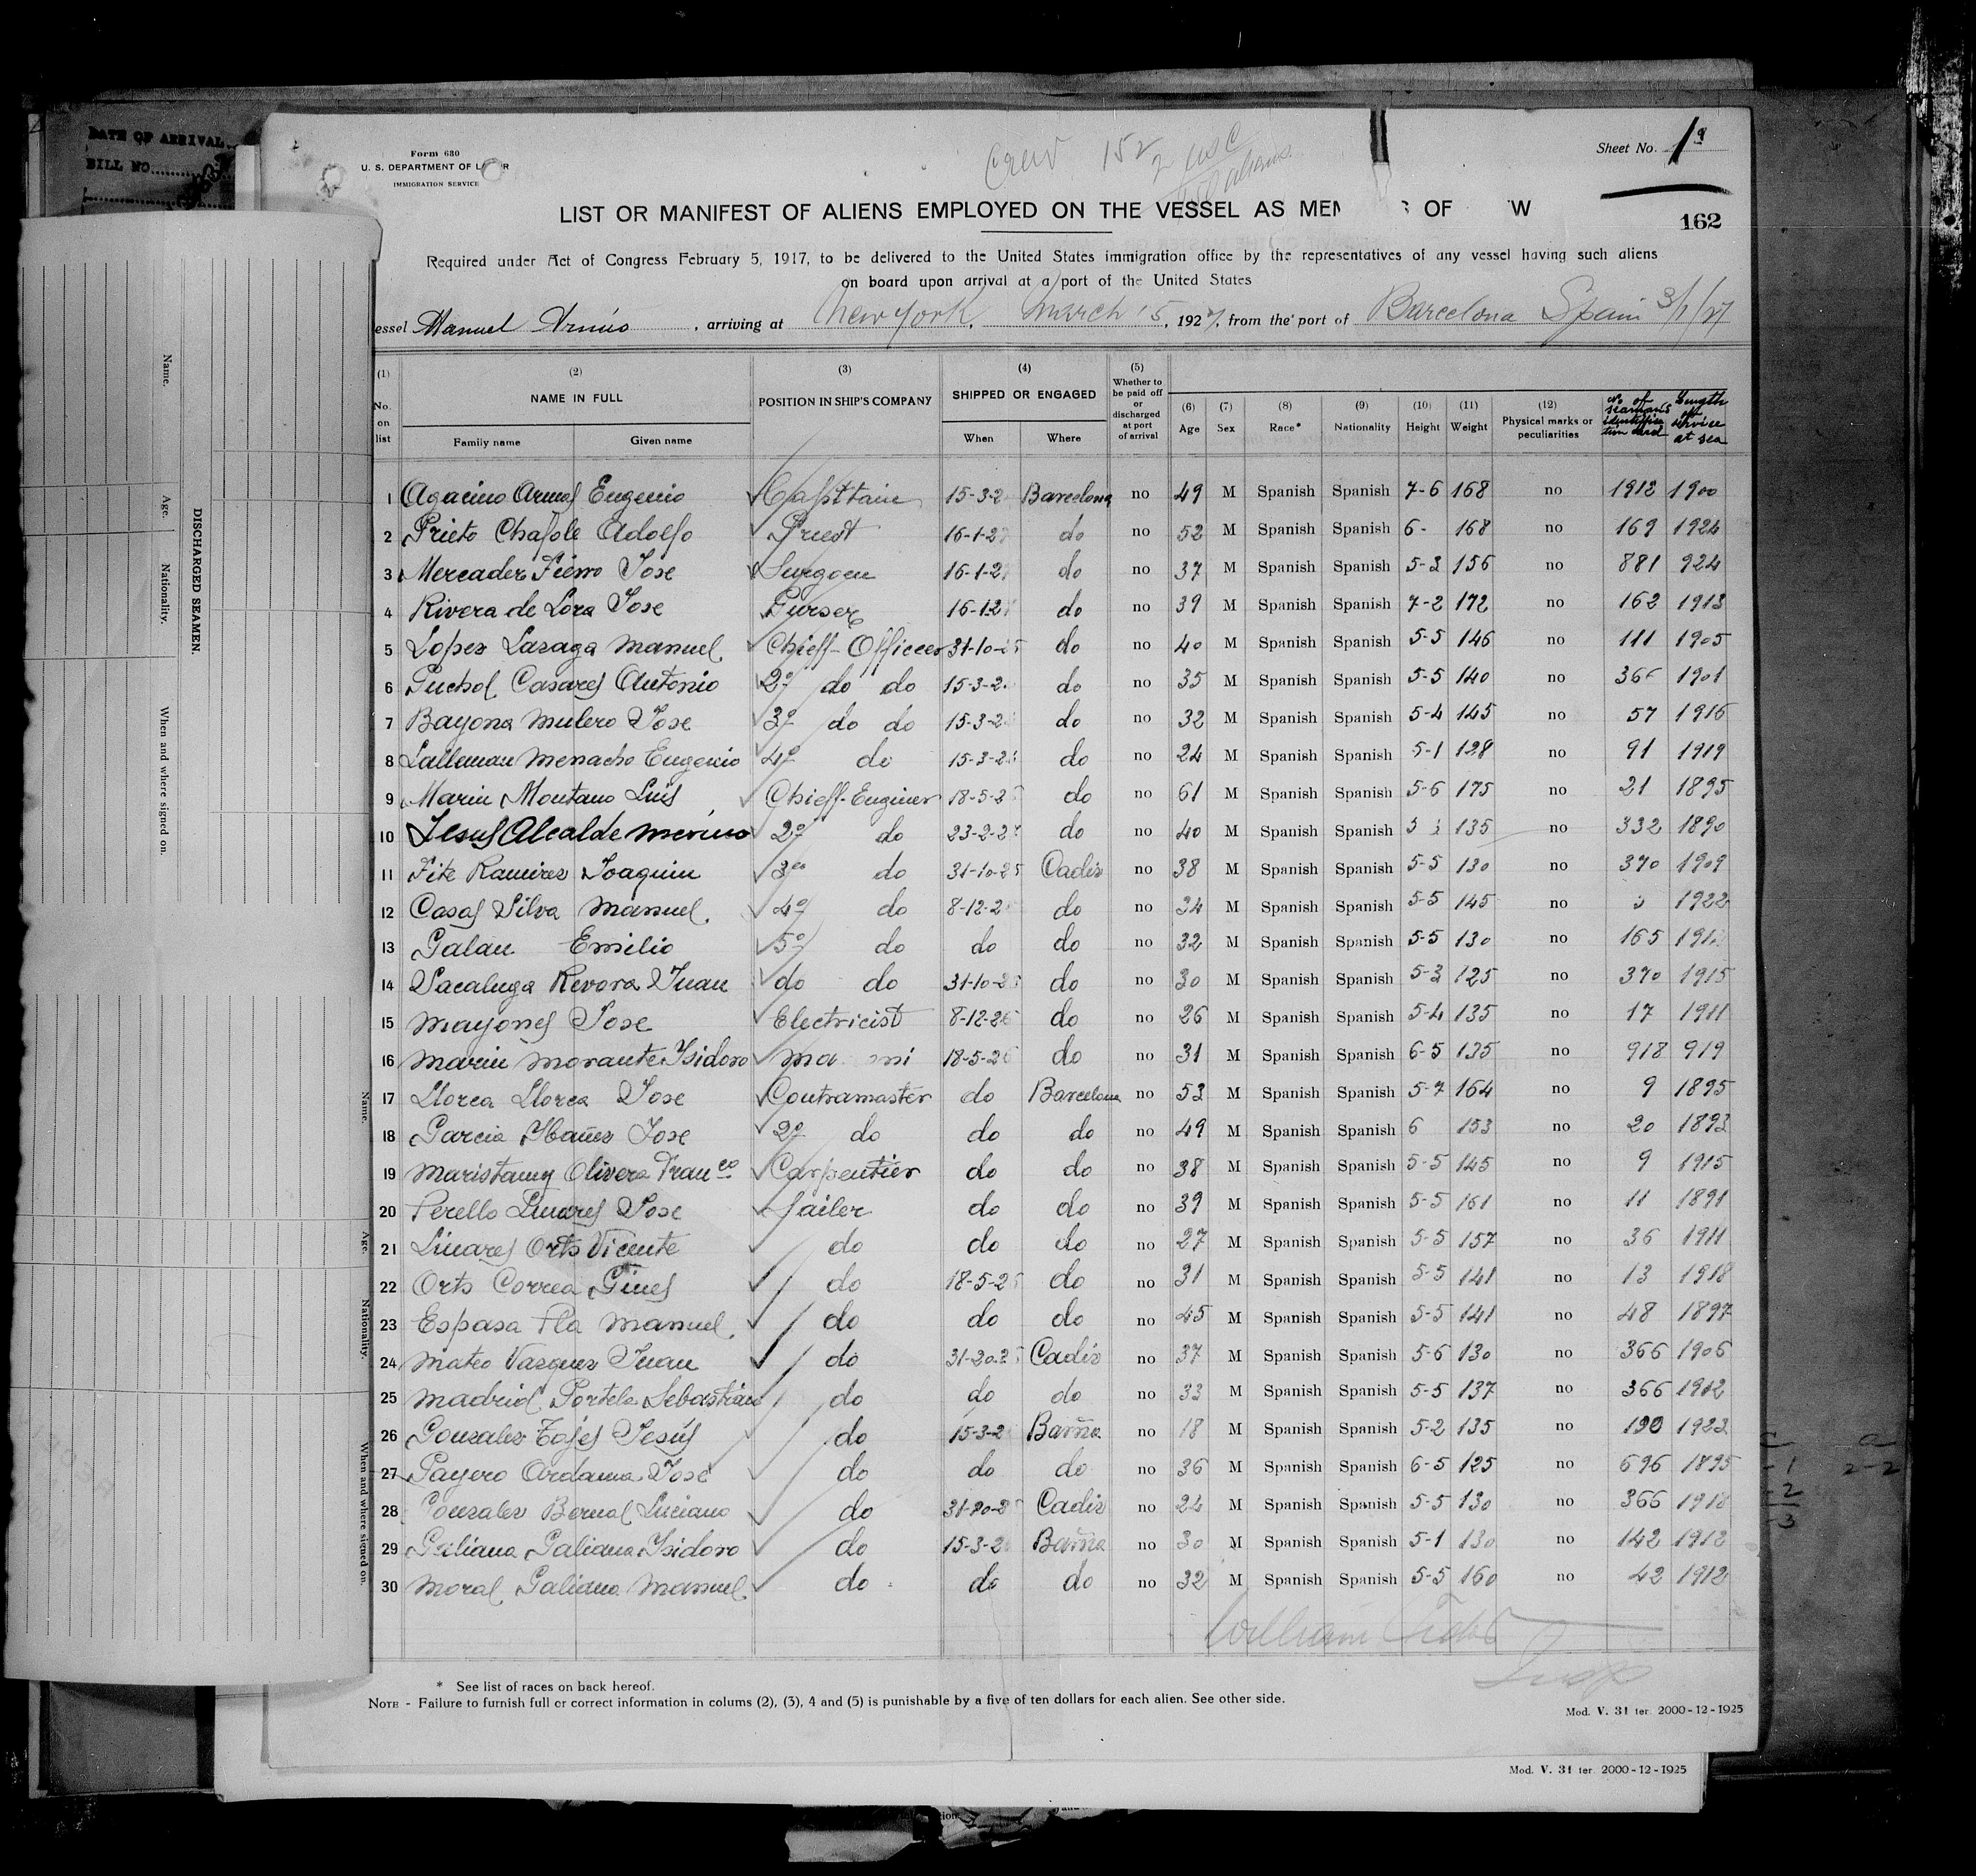 DATE OF ARRIVAL
BILL NO.
Form 680
U. S. DEPARTMENT OF L R
IMMIGRATION SERVICE
Crew 152
2 USC
150 aliens
Sheet No. 1ª
162
LIST OR MANIFEST OF ALIENS EMPLOYED ON THE VESSEL AS MEM S OF W
Required under Act of Congress February 5, 1917, to be delivered to the United States immigration office by the representatives of any vessel having such aliens
on board upon arrival at a port of the United States
essel Manuel Arnús, arriving at New York, March 15, 1927, from the port of Barcelona Spain 3/1/27
(1) No. on list (2) NAME IN FULL Family name Given name (3) POSITION IN SHIP'S COMPANY (4) SHIPPED OR ENGAGED When Where (5) Whether to be paid off or discharged at port of arrival (6) Age (7) Sex (8) Race* (9) Nationality (10) Height (11) Weight (12) Physical marks or peculiarities No of seaman's identification card Length of service at sea
1 Agacino Armas Eugenio Capittain 15-3-2 Barcelona no 49 M Spanish Spanish 7-6 168 no 1912 1900
2 Prieto Chafole Adolfo Priest 16-1-27 do no 52 M Spanish Spanish 6- 168 no 169 1924
3 Mercader Fierro Jose Surgoen 16-1-27 do no 37 M Spanish Spanish 5-3 156 no 881 924
4 Rivera de Lora Jose Purser 16-1-27 do no 39 M Spanish Spanish 7-2 172 no 162 1913
5 Lopez Lasaga Manuel Chieff-Officeer 31-10-25 do no 40 M Spanish Spanish 5-5 146 no 111 1905
6 Puchol Casares Antonio 2º do do 15-3-2 do no 35 M Spanish Spanish 5-5 140 no 366 1901
7 Bayona Mulero Jose 3º do do 15-3-2 do no 32 M Spanish Spanish 5-4 145 no 57 1916
8 Lalleman Menacho Eugenio 4º do 15-3-2 do no 24 M Spanish Spanish 5-1 128 no 91 1919
9 Marin Montano Luis Chieff-Enginer 18-5-2 do no 61 M Spanish Spanish 5-6 175 no 21 1895
10 Jesus Alcalde Merino 2º do 23-2-27 do no 40 M Spanish Spanish 5 135 no 332 1890
11 Fite Ramirez Joaquin 3º do 31-10-25 Cadiz no 38 M Spanish Spanish 5-5 130 no 370 1909
12 Casas Silva Manuel 4º do 8-12-2 do no 34 M Spanish Spanish 5-5 145 no 1922
13 Galan Emilio 5º do do do no 32 M Spanish Spanish 5-5 130 no 165 191
14 Sacaluga Revora Juan do do 31-10-25 do no 30 M Spanish Spanish 5-3 125 no 370 1915
15 Mayones Jose Electricist 8-12-26 do no 26 M Spanish Spanish 5-4 135 no 17 1911
16 Marin Morante Isidoro Ma oni 18-5-26 do no 31 M Spanish Spanish 6-5 135 no 918 919
17 Llorca Llorca Jose Contramaster do Barcelona no 53 M Spanish Spanish 5-7 164 no 9 1895
18 Garcia Ybañez Jose 2º do do do no 49 M Spanish Spanish 6 153 no 20 1893
19 Maristany Olivera Franco Carpentier do do no 38 M Spanish Spanish 5-5 145 no 9 1915
20 Perello Linares Jose Sailer do do no 39 M Spanish Spanish 5-5 161 no 11 1891
21 Linares Orts Vicente do do do no 27 M Spanish Spanish 5-5 157 no 36 1911
22 Orts Correa Gines do 18-5-2 do no 31 M Spanish Spanish 5-5 141 no 13 1918
23 Espasa Pla Manuel do do do no 45 M Spanish Spanish 5-5 141 no 48 1897
24 Mateo Vazquez Juan do 31-20-25 Cadiz no 37 M Spanish Spanish 5-6 130 no 366 1906
25 Madrid Portela Sebastian do do do no 33 M Spanish Spanish 5-5 137 no 366 1902
26 Gonzalez Tojes Jesús do 15-3-2 Barña no 18 M Spanish Spanish 5-2 135 no 190 1923
27 Payero Ardama Jose do do do no 36 M Spanish Spanish 6-5 125 no 696 1895
28 Gonzalez Bernal Luciano do 31-20-25 Cadiz no 24 M Spanish Spanish 5-5 130 no 366 1918
29 Galiana Galiana Isidoro do 15-3-2 Barña no 30 M Spanish Spanish 5-1 130 no 142 1912
30 Moral Galiana Manuel do do do no 32 M Spanish Spanish 5-5 160 no 42 1912
William
Insp
* See list of races on back hereof.
NOTE - Failure to furnish full or correct information in colums (2), (3), 4 and (5) is punishable by a five of ten dollars for each alien. See other side.
Mod. V. 31 ter. 2000-12-1925
Mod. V. 31 ter. 2000-12-1925
DISCHARGED SEAMEN.
Name. Age. Nationality. When and where signed on.
Name. Age. Nationality. When and where signed on.